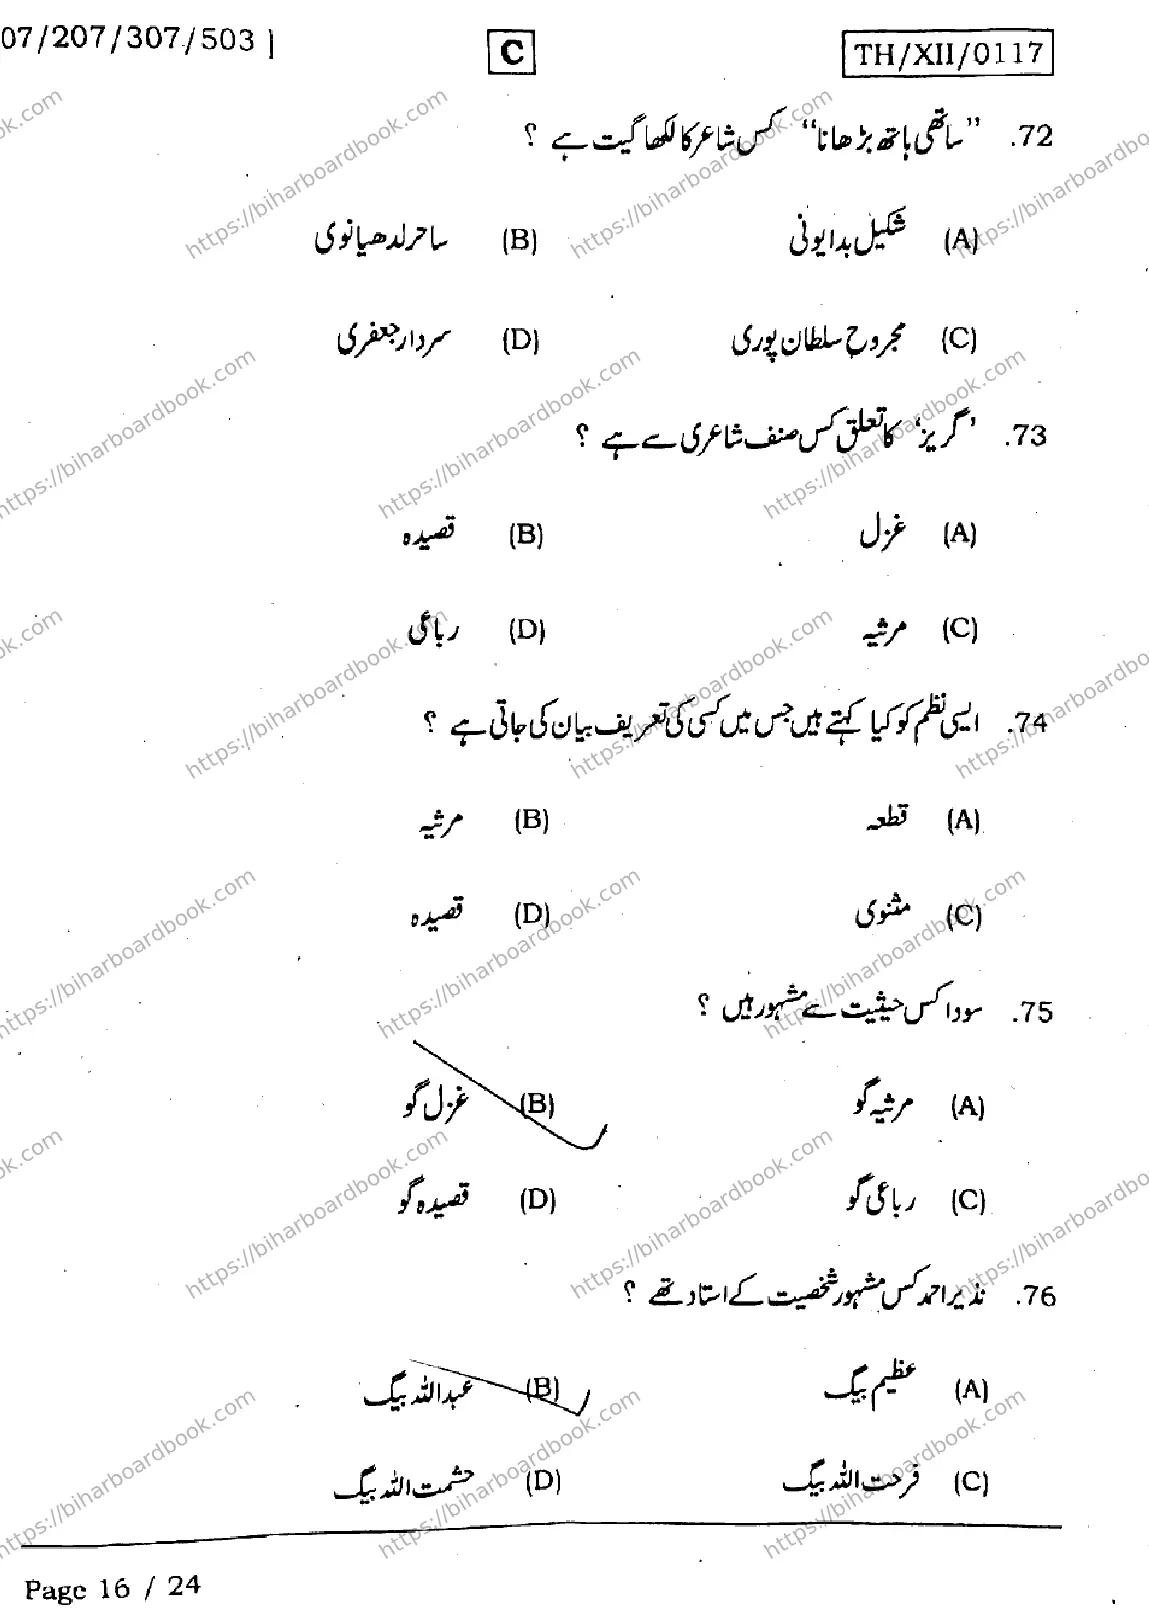 07/207/307/503 ]
C
TH/XII/0117
72. ”ساتھی ہاتھ بڑھانا“ کس شاعر کا لکھا گیت ہے ؟
(A) شکیل بدایونی (B) ساحر لدھیانوی
(C) مجروح سلطان پوری (D) سردار جعفری
73. ’گریز‘ کا تعلق کس صنف شاعری سے ہے ؟
(A) غزل (B) قصیدہ
(C) مرثیہ (D) رباعی
74. ایسی نظم کو کیا کہتے ہیں جس میں کسی کی تعریف بیان کی جاتی ہے ؟
(A) قطعہ (B) مرثیہ
(C) مثنوی (D) قصیدہ
75. سودا کس حیثیت سے مشہور ہیں ؟
(A) مرثیہ گو (B) غزل گو
(C) رباعی گو (D) قصیدہ گو
76. نذیر احمد کس مشہور شخصیت کے استاد تھے ؟
(A) عظیم بیگ (B) عبداللہ بیگ
(C) فرحت اللہ بیگ (D) حشمت اللہ بیگ
Page 16 / 24
https://biharboardbook.com